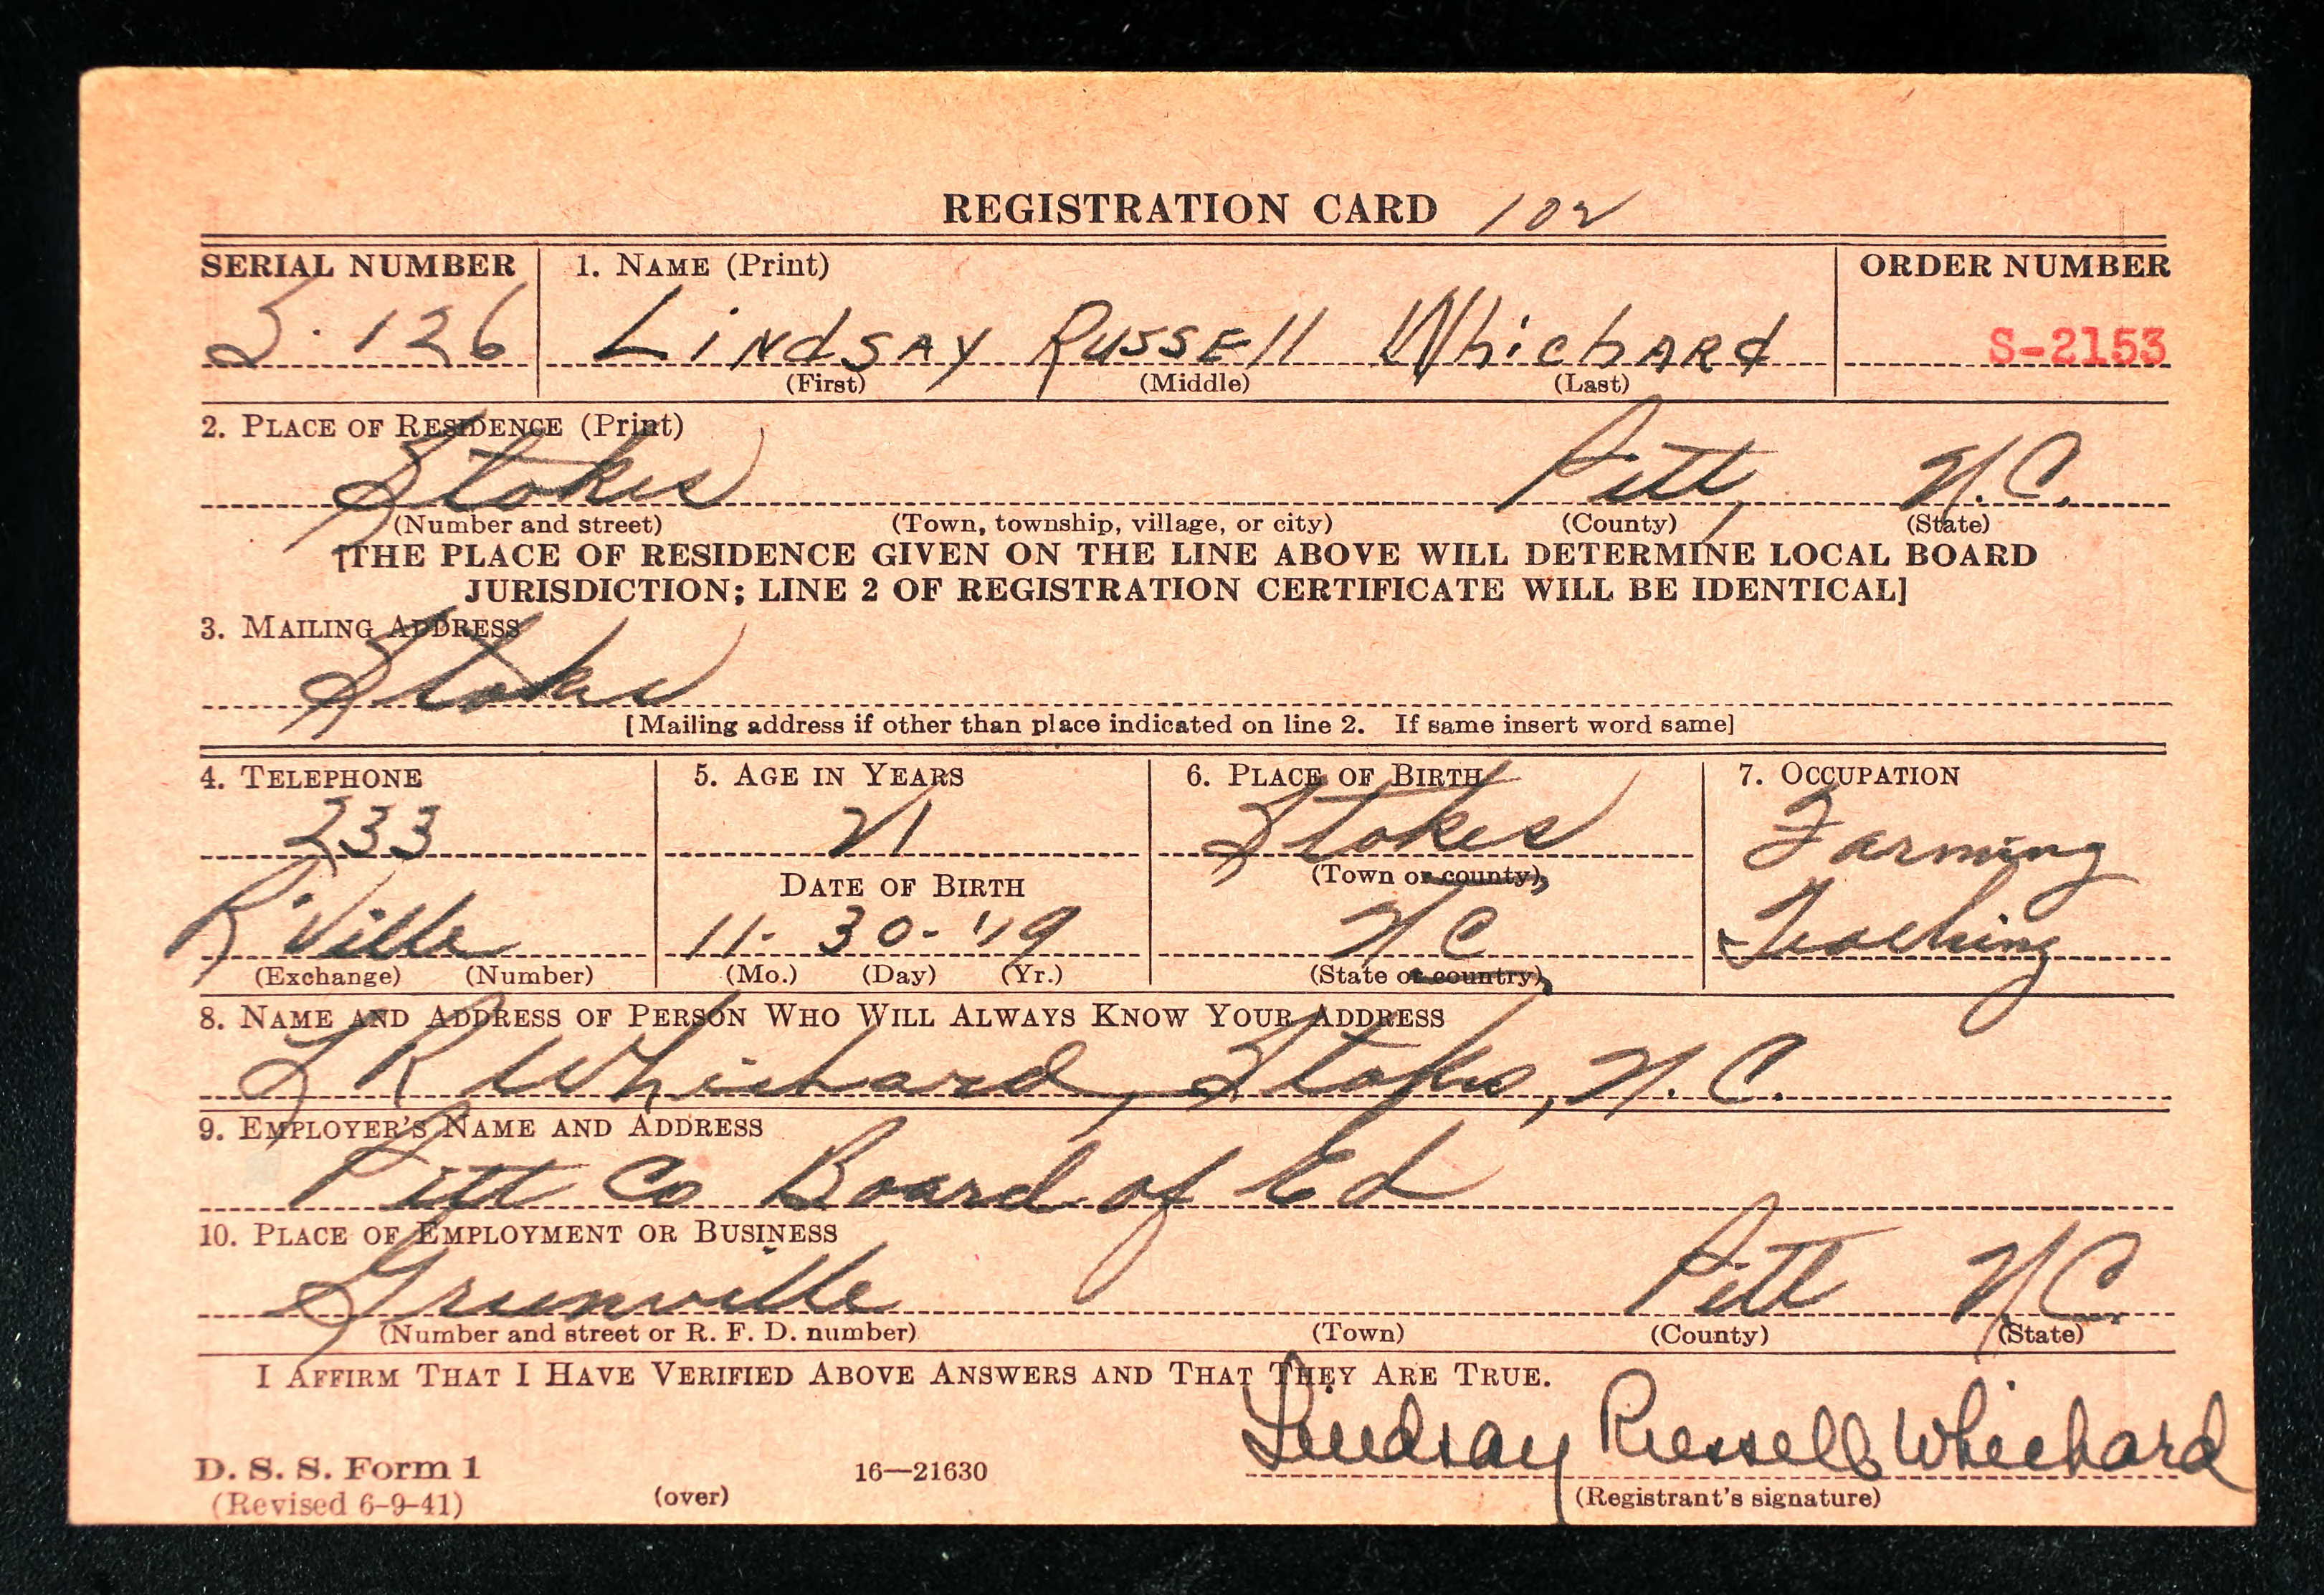 REGISTRATION CARD 102
SERIAL NUMBER 1. NAME (Print) ORDER NUMBER
S. 126 LiNdSAY RUSSEll WhichARd S-2153
(First) (Middle) (Last)
2. PLACE OF RESIDENCE (Print)
Stokes Pitt, N.C.
(Number and street) (Town, township, village, or city) (County) (State)
[THE PLACE OF RESIDENCE GIVEN ON THE LINE ABOVE WILL DETERMINE LOCAL BOARD
JURISDICTION; LINE 2 OF REGISTRATION CERTIFICATE WILL BE IDENTICAL]
3. MAILING ADDRESS
Stokes
[Mailing address if other than place indicated on line 2. If same insert word same]
4. TELEPHONE 5. AGE IN YEARS 6. PLACE OF BIRTH 7. OCCUPATION
233 21 Stokes Farming
DATE OF BIRTH (Town or county)
R'Ville 11- 30- '19 NC Teaching
(Exchange) (Number) (Mo.) (Day) (Yr.) (State or country)
8. NAME AND ADDRESS OF PERSON WHO WILL ALWAYS KNOW YOUR ADDRESS
L R Whichard, Stokes, N.C.
9. EMPLOYER'S NAME AND ADDRESS
Pitt Co Board of Ed
10. PLACE OF EMPLOYMENT OR BUSINESS
Greenville Pitt NC
(Number and street or R. F. D. number) (Town) (County) (State)
I AFFIRM THAT I HAVE VERIFIED ABOVE ANSWERS AND THAT THEY ARE TRUE.
Lindsay Russell Whichard
D. S. S. Form 1 16—21630
(Revised 6-9-41) (over) (Registrant's signature)